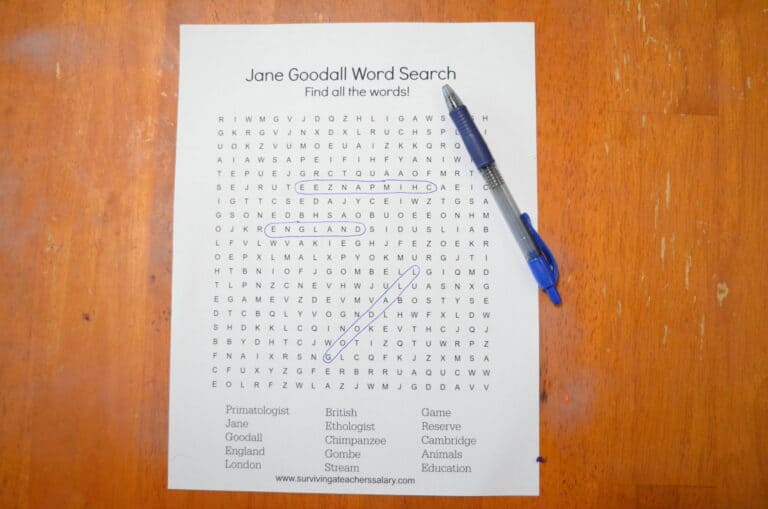 Jane Goodall Word Search
Find all the words!
R I W M G V J D Q Z H L I G A W S H
G K R G V J N X D X L R U C H S P I
U O K Z V U M O E U A I Z K K Q R Q
A I A W S A P E I F I H F Y A N I W
T E P U E J G R C T Q U A A O F M R T
S E J R U T E E Z N A P M I H C A E I C
I G T T C S E D A J Y C E I W Z T G S A
G S O N E D B H S A O B U O E E O N H M
O J K R E N G L A N D S I D U S L I A B
L F V L W V A K I E G H J F E Z O E K R
O E P X L M A L X P Y O K M U R G J T I
H T B N I O F J G O M B E L L G I Q M D
T L P N Z C N E V H W J U L U A S N X G
E G A M E V Z D E V M V A B O S T Y S E
D T C B Q L Y V O G N D L H W F X L D W
S H D K K L C Q I N O K E V T H C J Q J
B B Y D H T C J W O T I Z Q T U W R P Z
F N A I X R S N G L C Q F K J Z X M S A
C F U X Y Z G F E R B R R U A Q U C W W
E O L R F Z W L A Z J W M J G D D A V V
Primatologist British Game
Jane Ethologist Reserve
Goodall Chimpanzee Cambridge
England Gombe Animals
London Stream Education
www.survivingateacherssalary.com